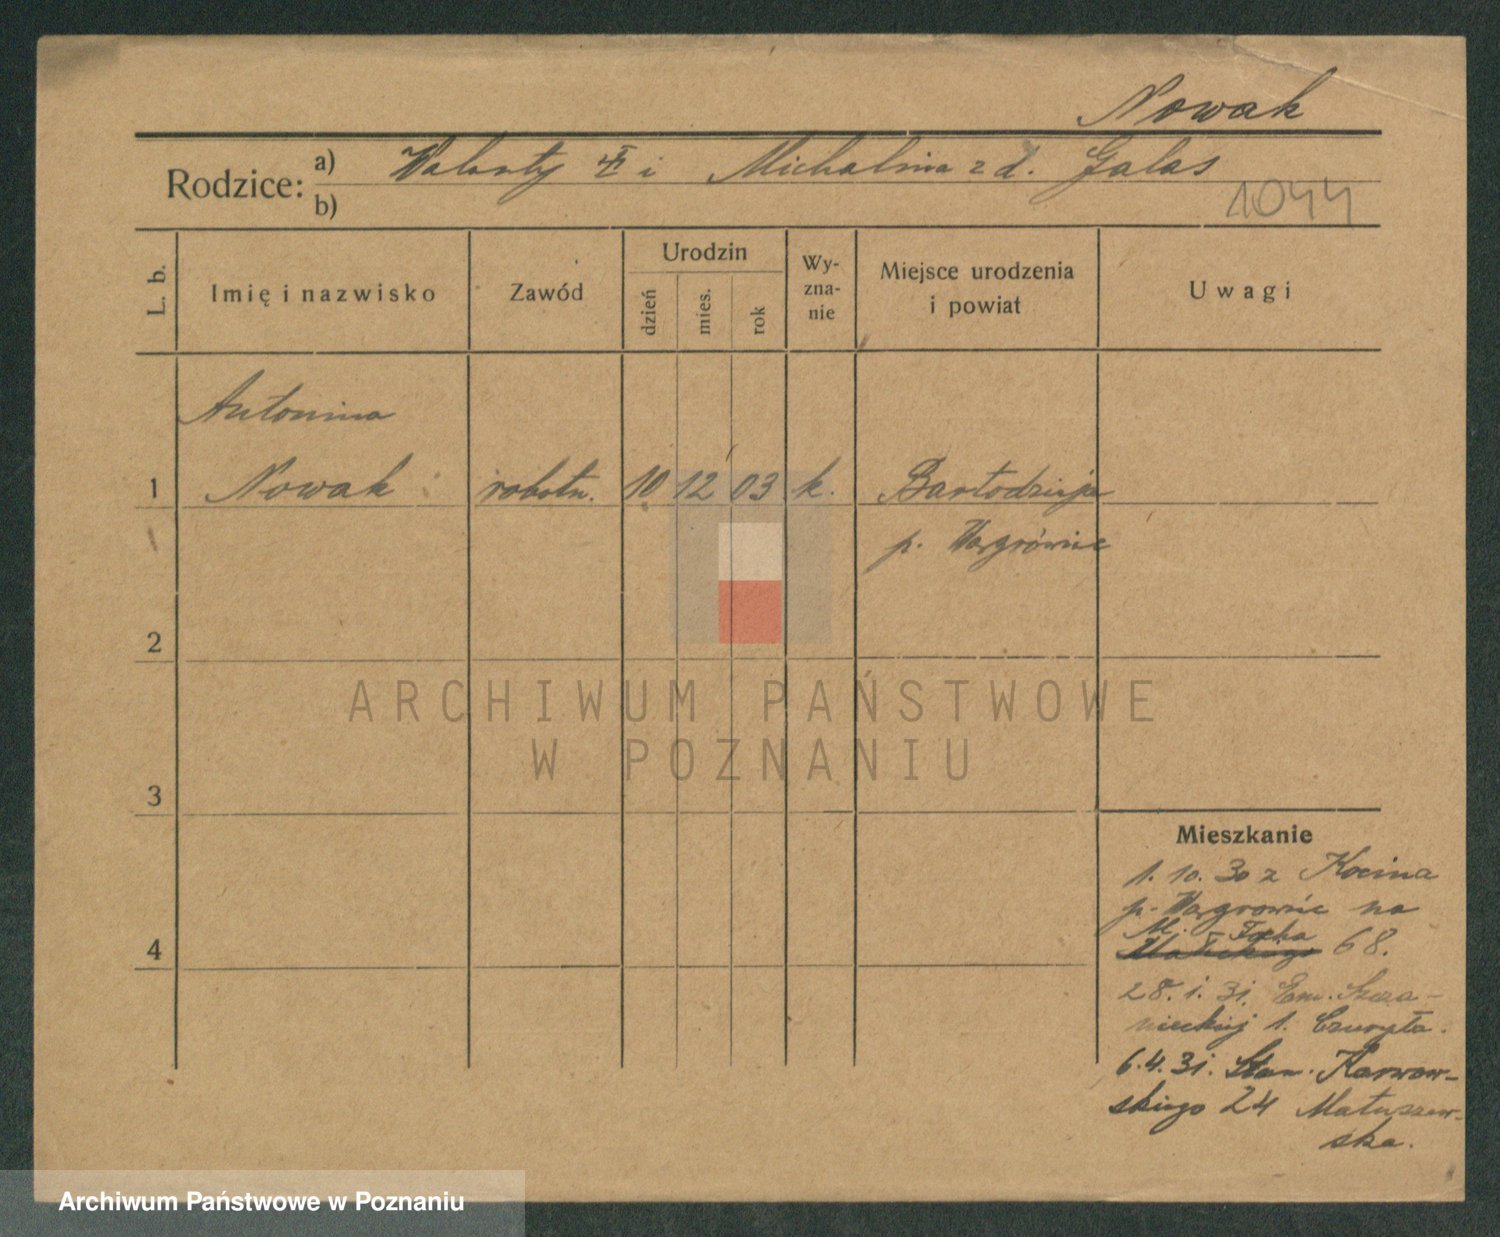 Nowak
Rodzice: a) Walenty i Michalina z d. Galas
b)
1044
L. b.
Imię i nazwisko
Zawód
Urodzin
dzień
mies.
rok
Wy-
zna-
nie
Miejsce urodzenia
i powiat
Uwagi
Antonina
1 Nowak robotn. 10 12 03 k. Bartodzieje
p. Wągrówiec
2
3
4
ARCHIWUM PAŃSTWOWE
W POZNANIU
Mieszkanie
1. 10. 30 z Kocina
p. Wągrowiec na
M. Focha
68.
28. 1. 31. Em. Szcza-
nieckiej 1. Czuryła.
6.4.31. Stan. Karwow-
skiego 24 Matuszew-
ska.
Archiwum Państwowe w Poznaniu